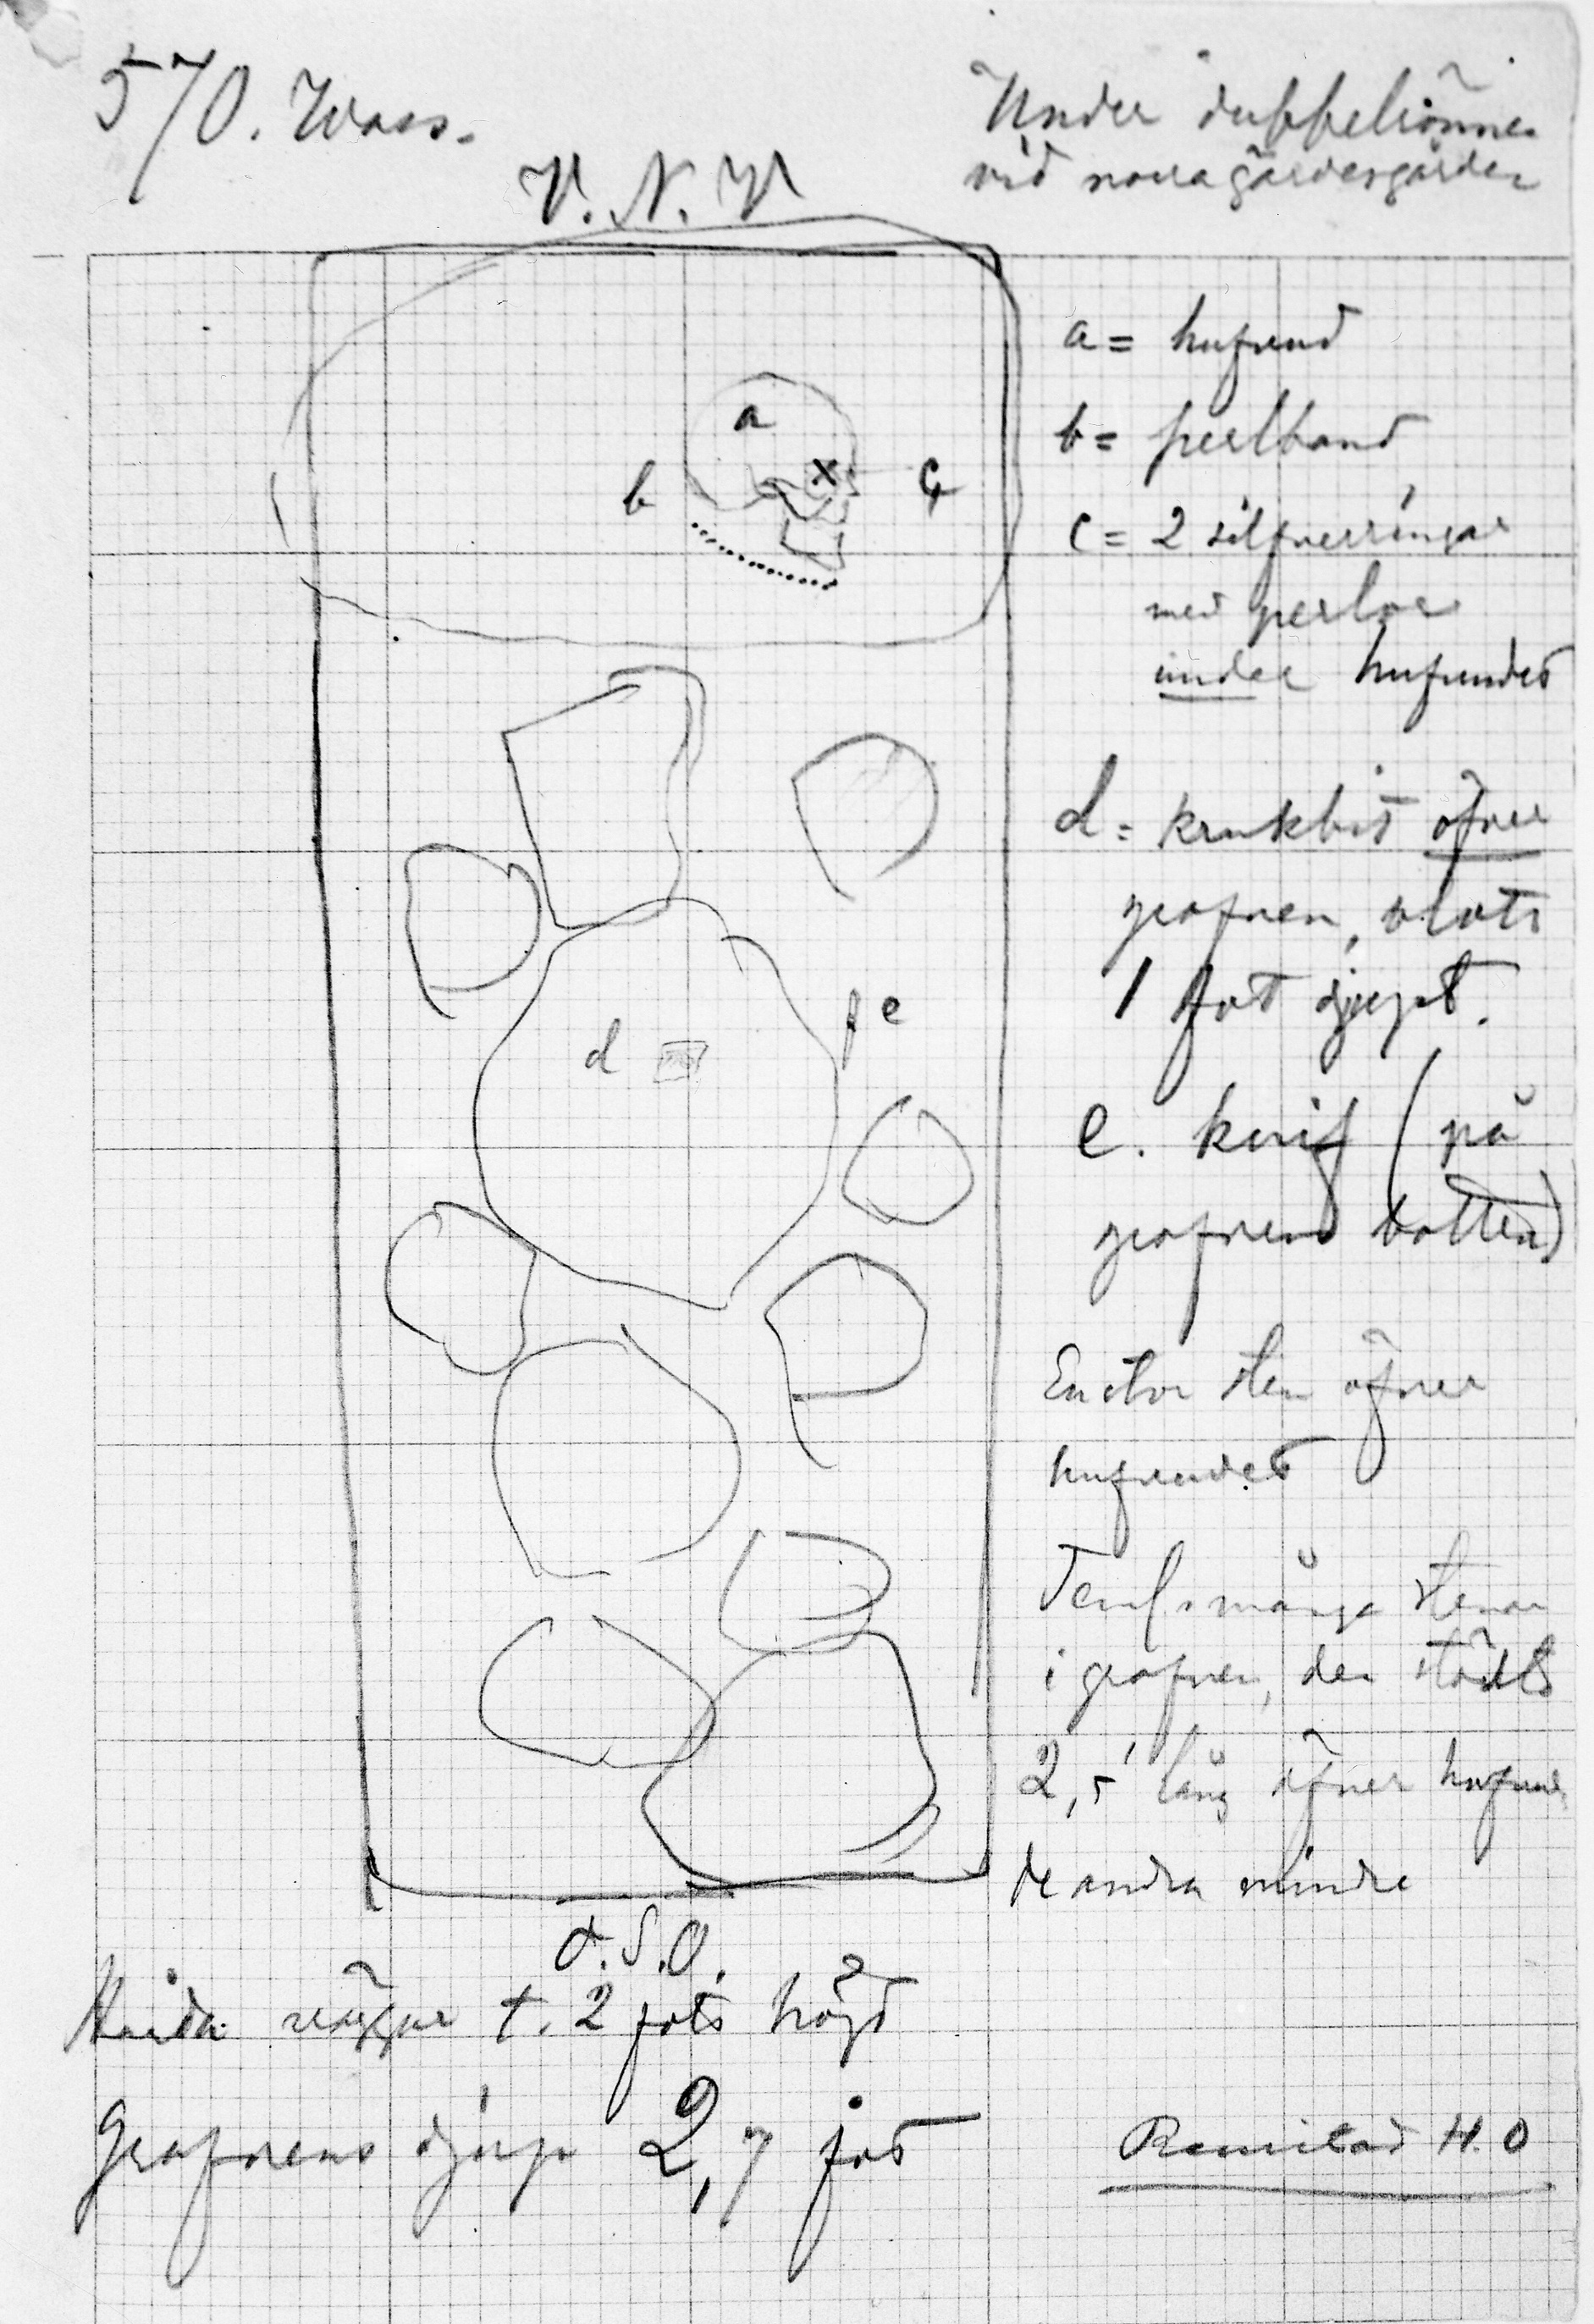 570.
V. N. V
Under dubbelrönnen
vid norra gärdesgården
a = hufvud
b = perlband
c = 2 silfverringar
med perlor
under hufvudet
a
b
x
c
d = krukbit öfver
grafven, blott
1 fot djupt.
e
d
e. knif (på
grafvens botten)
En stor sten öfver
hufvudet
många stenar
i grafven, den störst
2,5' lång öfver hufvud
de andra mindre
O.S.O.
t. 2 fots höjd
Grafvens djup 2,7 fot
H. O